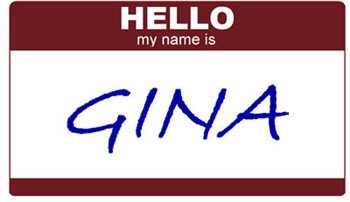 HELLO
my name is
GINA